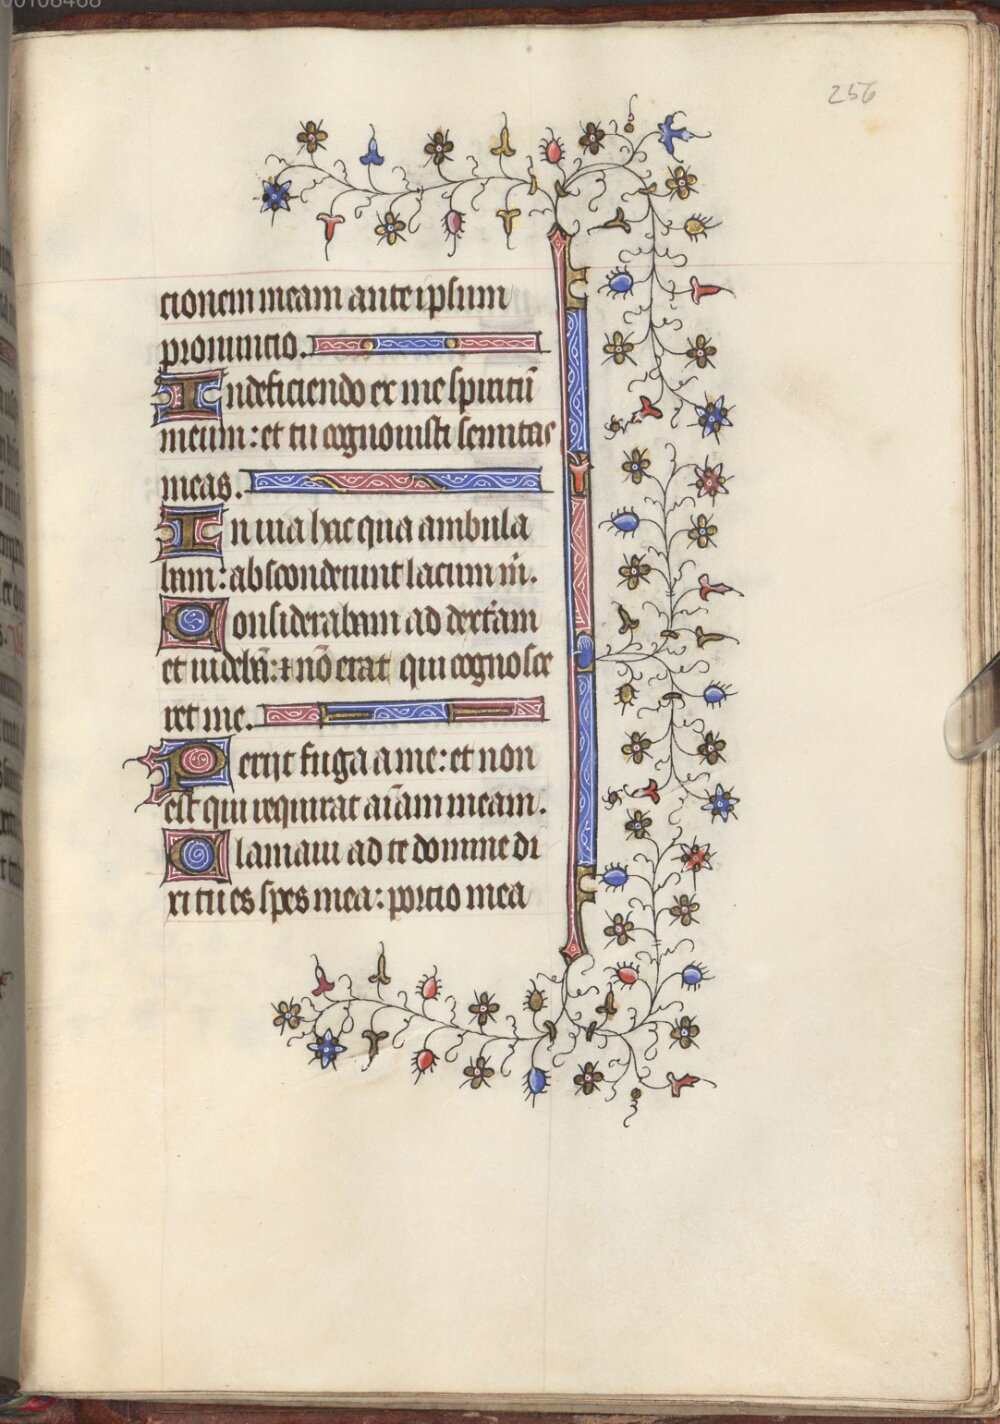 256
cionem meam ante ipsum
pronuncio.
In deficiendo ex me spiritū
meum: et tu cognouisti semitas
meas.
In uia hac qua ambula
bam: absconderunt laqueum m̄.
Considerabam ad dextram
et uidebā: ⁊ nō erat qui cognosce
ret me.
Perijt fuga a me: et non
est qui requirat aīam meam.
Clamaui ad te domine di
xi tu es spes mea: porcio mea